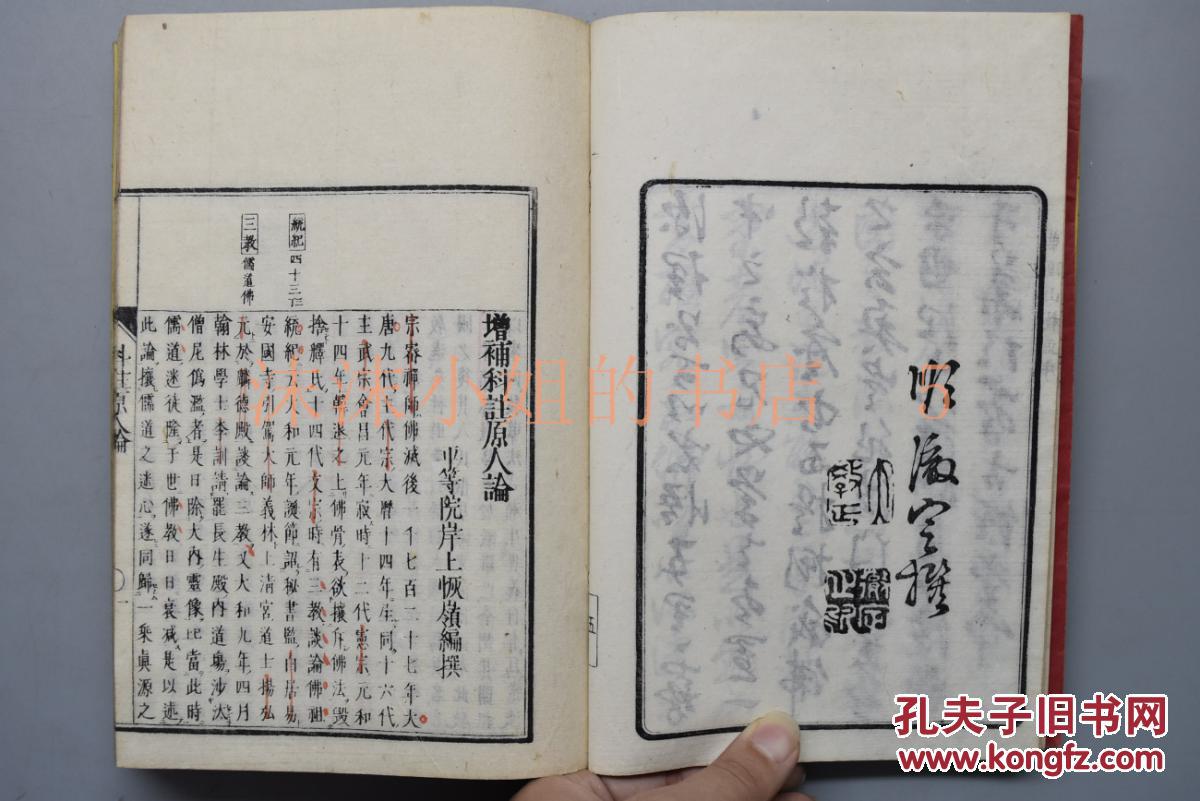 徹定撰
増補科註原人論
平等院岸上恢嶺編撰
宗密禪師佛滅後一千七百二十七年大
唐九代主代宗大暦十四年生同十六代
主武宗會昌元年寂時十二代憲宗元和
十四年韓退之上佛骨表欲攘斥佛法毀
捨釋氏十四代文宗時有三教談論佛祖
統紀云大和元年誕節詔秘書監白居易
安國寺引駕大師義林上清宮道士揚弘
元於麟德殿談論三教又大和九年四月
翰林學士李訓請罷長生殿內道場沙汰
僧尼僞濫者是日除大內靈像當此時
儒道迷徒隆于世佛教日日衰減是以述
此論攘儒道之迷心遂同歸一乘眞源之
統紀 四十三
三教 儒道佛
科註原人論
〇一
五
沫沫小姐的书店
孔夫子旧书网
www.kongfz.com